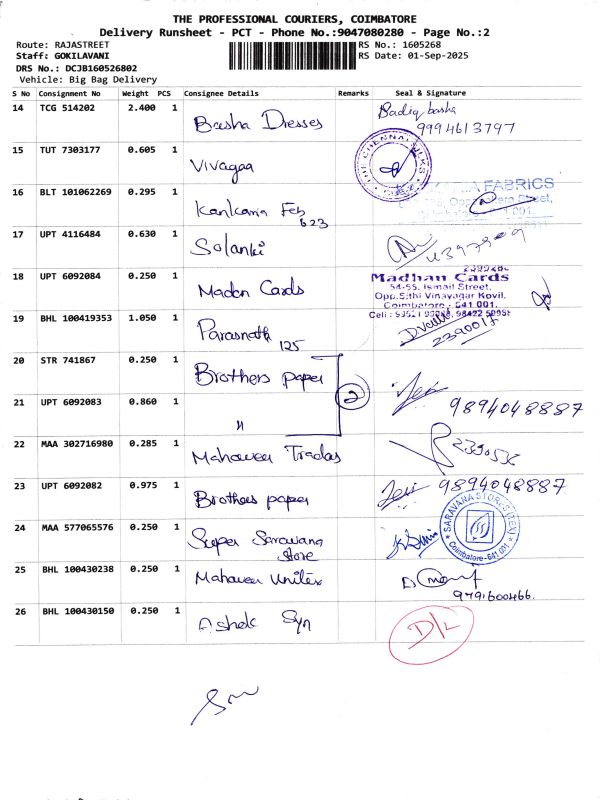 THE PROFESSIONAL COURIERS, COIMBATORE
Delivery Runsheet - PCT - Phone No.:9047080280 - Page No.:2
Route: RAJASTREET
Staff: GOKILAVANI
DRS No.: DCJB160526802
Vehicle: Big Bag Delivery
RS No.: 1605268
RS Date: 01-Sep-2025
S No Consignment No Weight PCS Consignee Details Remarks Seal & Signature
14 TCG 514202 2.400 1 Basha Dresses Badiq basha
9994613797
15 TUT 7303177 0.605 1 Vivagaa THE CHENNAI SILKS
16 BLT 101062269 0.295 1 Kankaria Feb FABRICS
623
17 UPT 4116484 0.630 1 Solanki
18 UPT 6092084 0.250 1 Madon Cards Madhan Cards
54-55, Ismail Street,
Opp.Sithi Vinayagar Kovil,
Coimbatore - 641 001.
19 BHL 100419353 1.050 1 Parasnath 125 2390017
20 STR 741867 0.250 1 Brothers paper 2
21 UPT 6092083 0.860 1 " 9894048887
22 MAA 302716980 0.285 1 Mahaveer Trades
23 UPT 6092082 0.975 1 Brothers paper 9894048887
24 MAA 577065576 0.250 1 Super Saravana Store SARAVANA STORES (TEX)
Coimbatore - 641 001
25 BHL 100430238 0.250 1 Mahaveer Unitex
9791600466.
26 BHL 100430150 0.250 1 Ashok Syn D/L